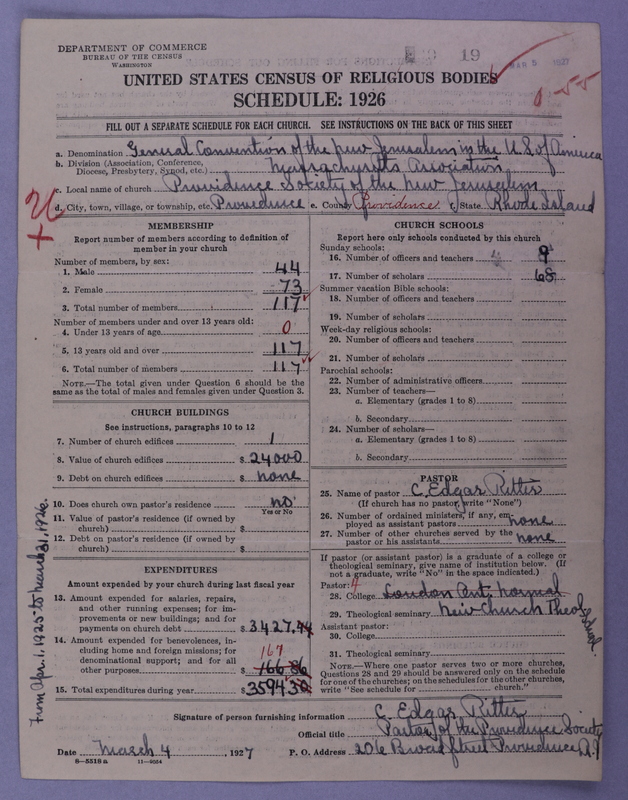 DEPARTMENT OF COMMERCE
BUREAU OF THE CENSUS
WASHINGTON
19
MAR 5 1927
UNITED STATES CENSUS OF RELIGIOUS BODIES
SCHEDULE: 1926
1-55
FILL OUT A SEPARATE SCHEDULE FOR EACH CHURCH. SEE INSTRUCTIONS ON THE BACK OF THIS SHEET
a. Denomination General Convention of the New Jerusalem in the U.S. of America
b. Division (Association, Conference, Diocese, Presbytery, Synod, etc.) Massachusetts Association
c. Local name of church Providence Society of the New Jerusalem
d. City, town, village, or township, etc. Providence e. County Providence f. State Rhode Island
MEMBERSHIP
Report number of members according to definition of member in your church
Number of members, by sex:
1. Male 44
2. Female 73
3. Total number of members 117
Number of members under and over 13 years old:
4. Under 13 years of age 0
5. 13 years old and over 117
6. Total number of members 117
NOTE.—The total given under Question 6 should be the same as the total of males and females given under Question 3.
CHURCH BUILDINGS
See instructions, paragraphs 10 to 12
7. Number of church edifices 1
8. Value of church edifices $ 24000
9. Debt on church edifices $ none
10. Does church own pastor's residence no
Yes or No
11. Value of pastor's residence (if owned by church) $
12. Debt on pastor's residence (if owned by church) $
EXPENDITURES
Amount expended by your church during last fiscal year
13. Amount expended for salaries, repairs, and other running expenses; for improvements or new buildings; and for payments on church debt $ 3427.44
14. Amount expended for benevolences, including home and foreign missions; for denominational support; and for all other purposes 167 166 86
15. Total expenditures during year $ 3594 30
From Apr. 1, 1925 to March 31, 1926.
CHURCH SCHOOLS
Report here only schools conducted by this church
Sunday schools:
16. Number of officers and teachers 9
17. Number of scholars 68
Summer vacation Bible schools:
18. Number of officers and teachers
19. Number of scholars
Week-day religious schools:
20. Number of officers and teachers
21. Number of scholars
Parochial schools:
22. Number of administrative officers
23. Number of teachers—
a. Elementary (grades 1 to 8)
b. Secondary
24. Number of scholars—
a. Elementary (grades 1 to 8)
b. Secondary
PASTOR
25. Name of pastor C. Edgar Rittis
(If church has no pastor, write "None")
26. Number of ordained ministers, if any, employed as assistant pastors none
27. Number of other churches served by the pastor or his assistants none
If pastor (or assistant pastor) is a graduate of a college or theological seminary, give name of institution below. (If not a graduate, write "No" in the space indicated.)
Pastor:
28. College London Ont. Normal
29. Theological seminary New Church Theol School.
Assistant pastor:
30. College
31. Theological seminary
NOTE.—Where one pastor serves two or more churches, Questions 28 and 29 should be answered only on the schedule for one of the churches; on the schedules for the other churches, write "See schedule for church."
Signature of person furnishing information C. Edgar Rittis
Official title Pastor of the Providence Society
Date March 4, 1927 P. O. Address 206 Broad Street Providence, R.I.
8—5518a 11—9034